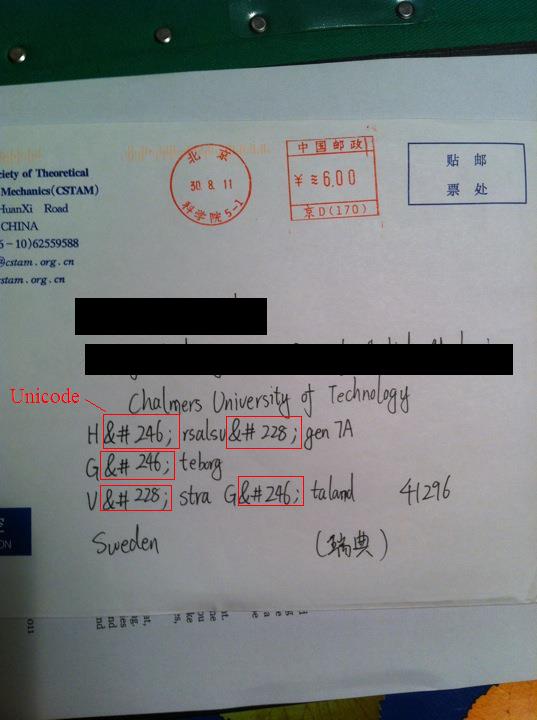 北京
30.8.11
科学院5-1
中国邮政
¥≋6.00
京D(170)
贴 邮
票 处
ciety of Theoretical
Mechanics(CSTAM)
HuanXi Road
CHINA
6-10)62559588
@cstam.org.cn
stam.org.cn
Unicode
Chalmers University of Technology
H&#246;rsalsv&#228;gen 7A
G&#246;teborg
V&#228;stra G&#246;taland 41296
Sweden (瑞典)
ON
011